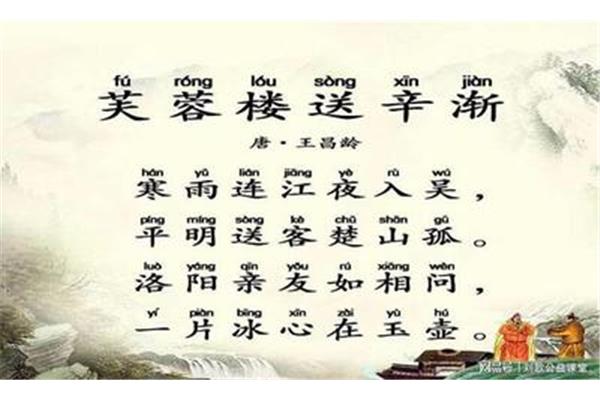 fú róng lóu sòng xīn jiàn
芙蓉楼送辛渐
唐·王昌龄
hán yǔ lián jiāng yè rù wú
寒雨连江夜入吴，
píng míng sòng kè chǔ shān gū
平明送客楚山孤。
luò yáng qīn yǒu rú xiāng wèn
洛阳亲友如相问，
yí piàn bīng xīn zài yù hú
一片冰心在玉壶。
网易号 | 刘歆公益课堂